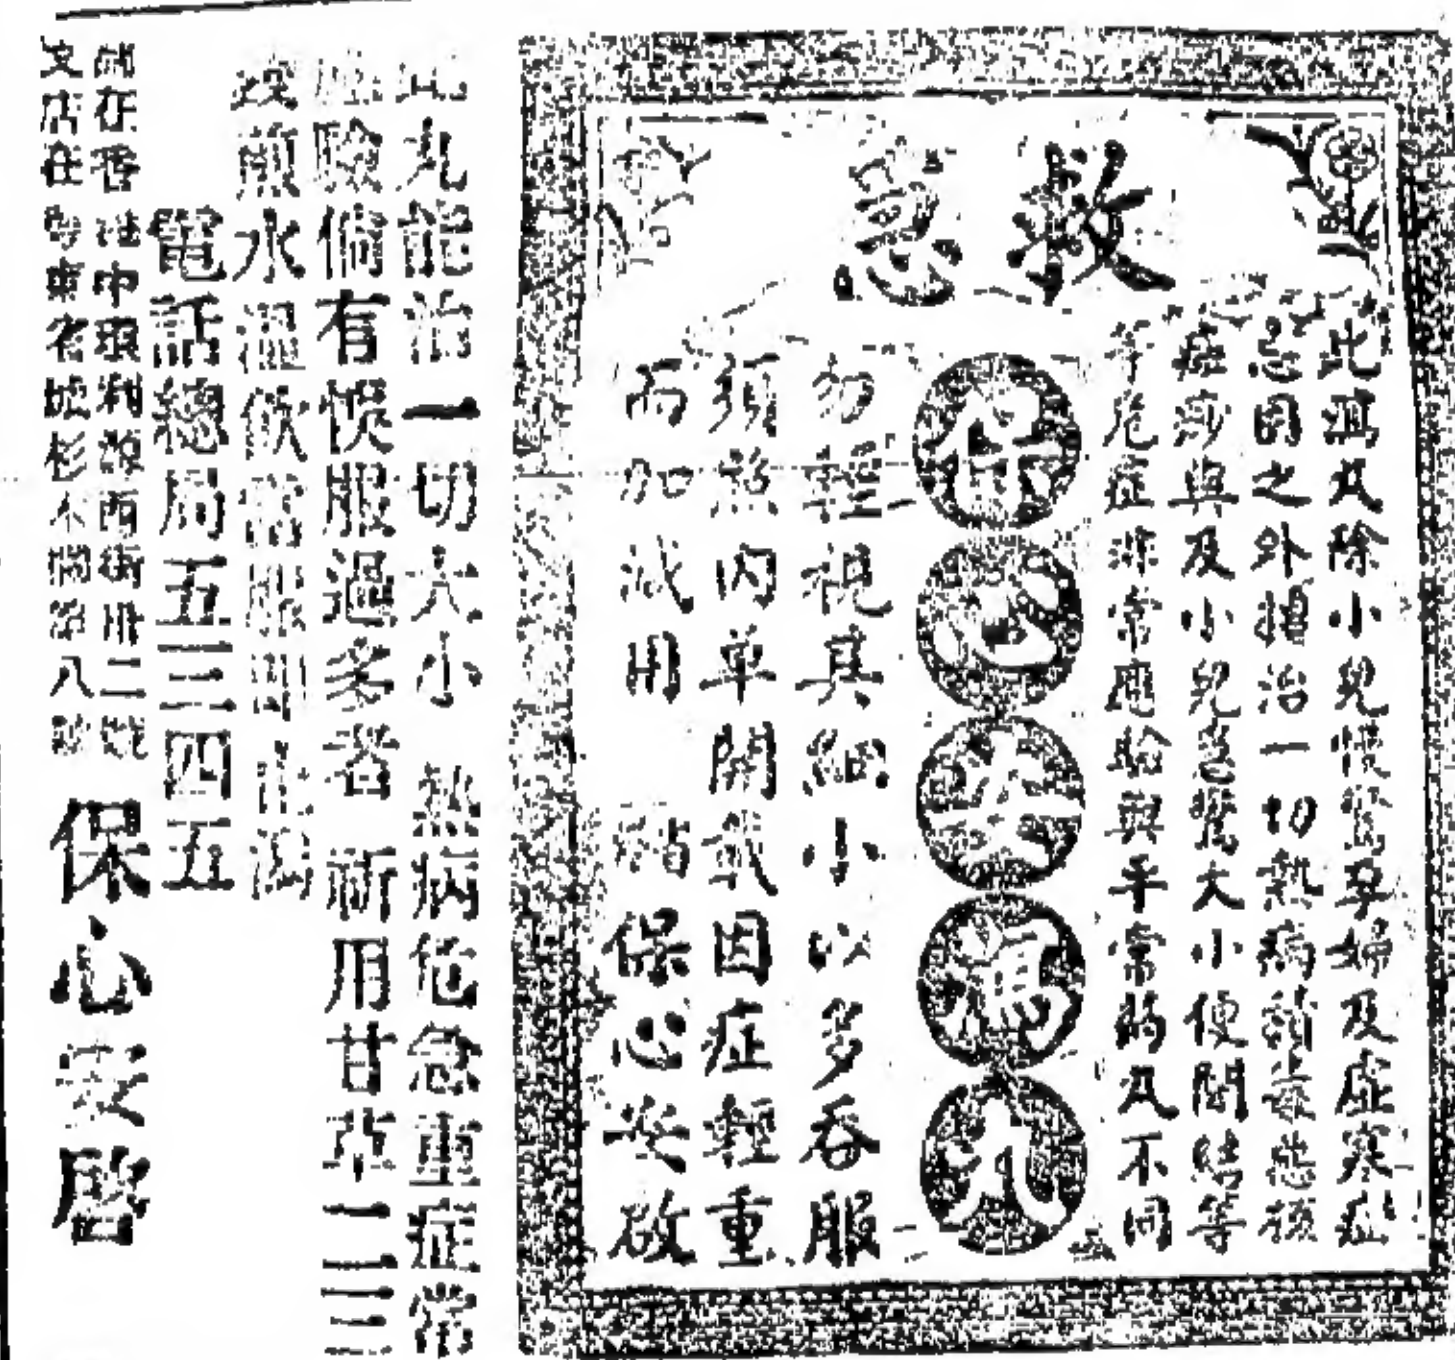 救急
此瀉丸除小兒慢驚孕婦及虛寒症
忌用之外擅治一切熱病諸毒惡核
症痧與及小兒急驚大小便閉結等
等危症非常應驗與平常瀉丸不同
保心安瀉丸
勿輕視其細小以多吞服
須照內单開載因症輕重
而加減用
保心安啟
此丸能治一切大小 熱病危急重症常
應驗倘有悞服過多者 祈用甘草二三
錢煎水溫飲當服即止瀉
電話總局五三四五
舖在香港中環利源西街卅二號
支店在粤東省城杉木欄第八號
保心安啓